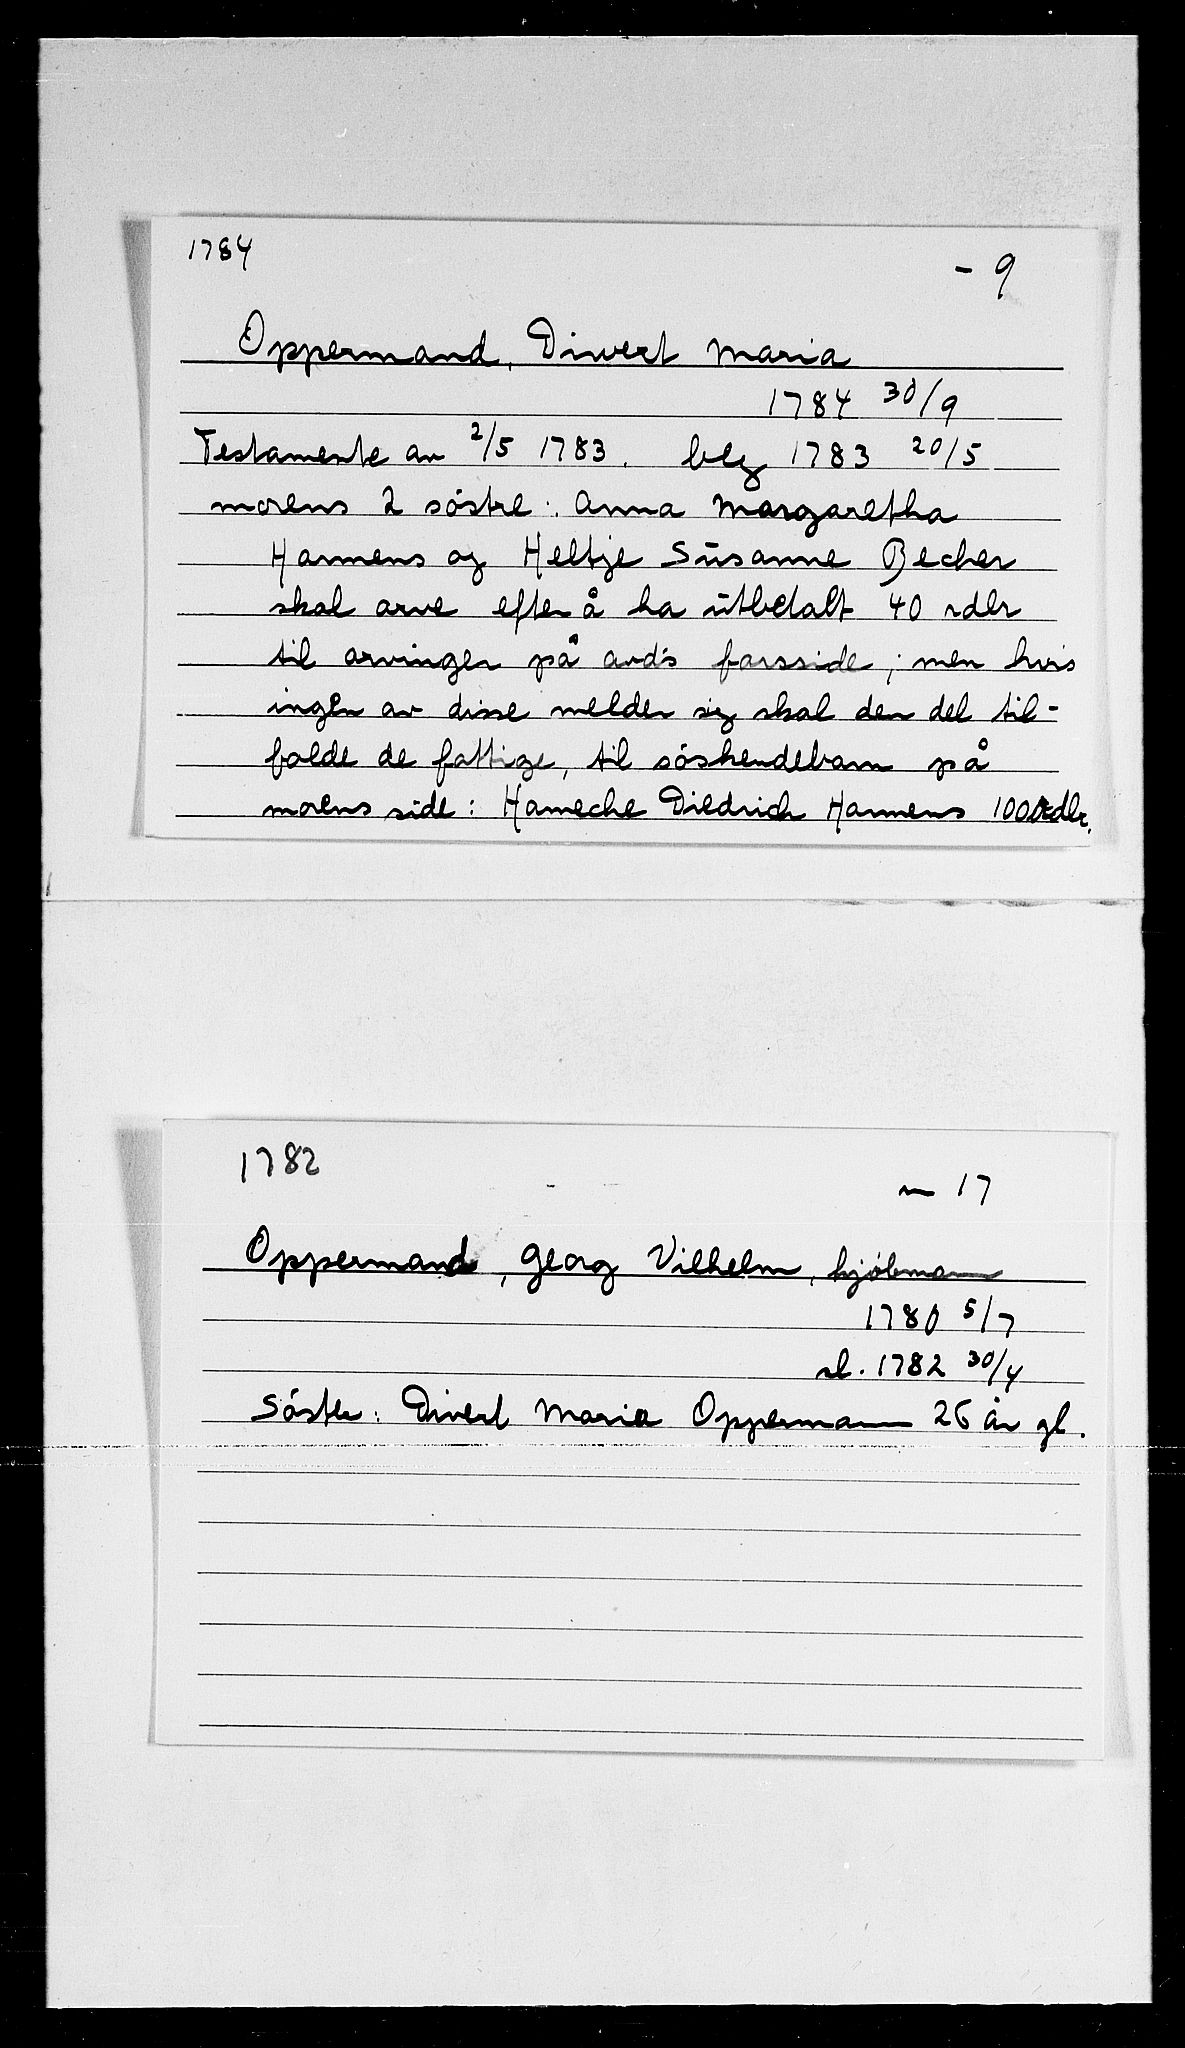 1784
- 9
Oppermand, Diwert Maria
1784 30/9
Testamente av 2/5 1783. blg 1783 20/5
morens 2 söstre: Anna Margaretha
Harmens og Heltje Süsanne Becher
skal arve efter å ha ütbetalt 40 rdlr
til arvinger på avd's farsside; men hvis
ingen av disse melder sig skal den del til-
falde de fattige, til söskendebarn på
morens side: Harneche Diedrich Harmens 1000rdlr.
1782
17
Oppermand, Georg Vilhelm, kjøbmann
1780 5/7
sl. 1782 30/4
Söster: Divert Maria Oppermann 26 år gl.